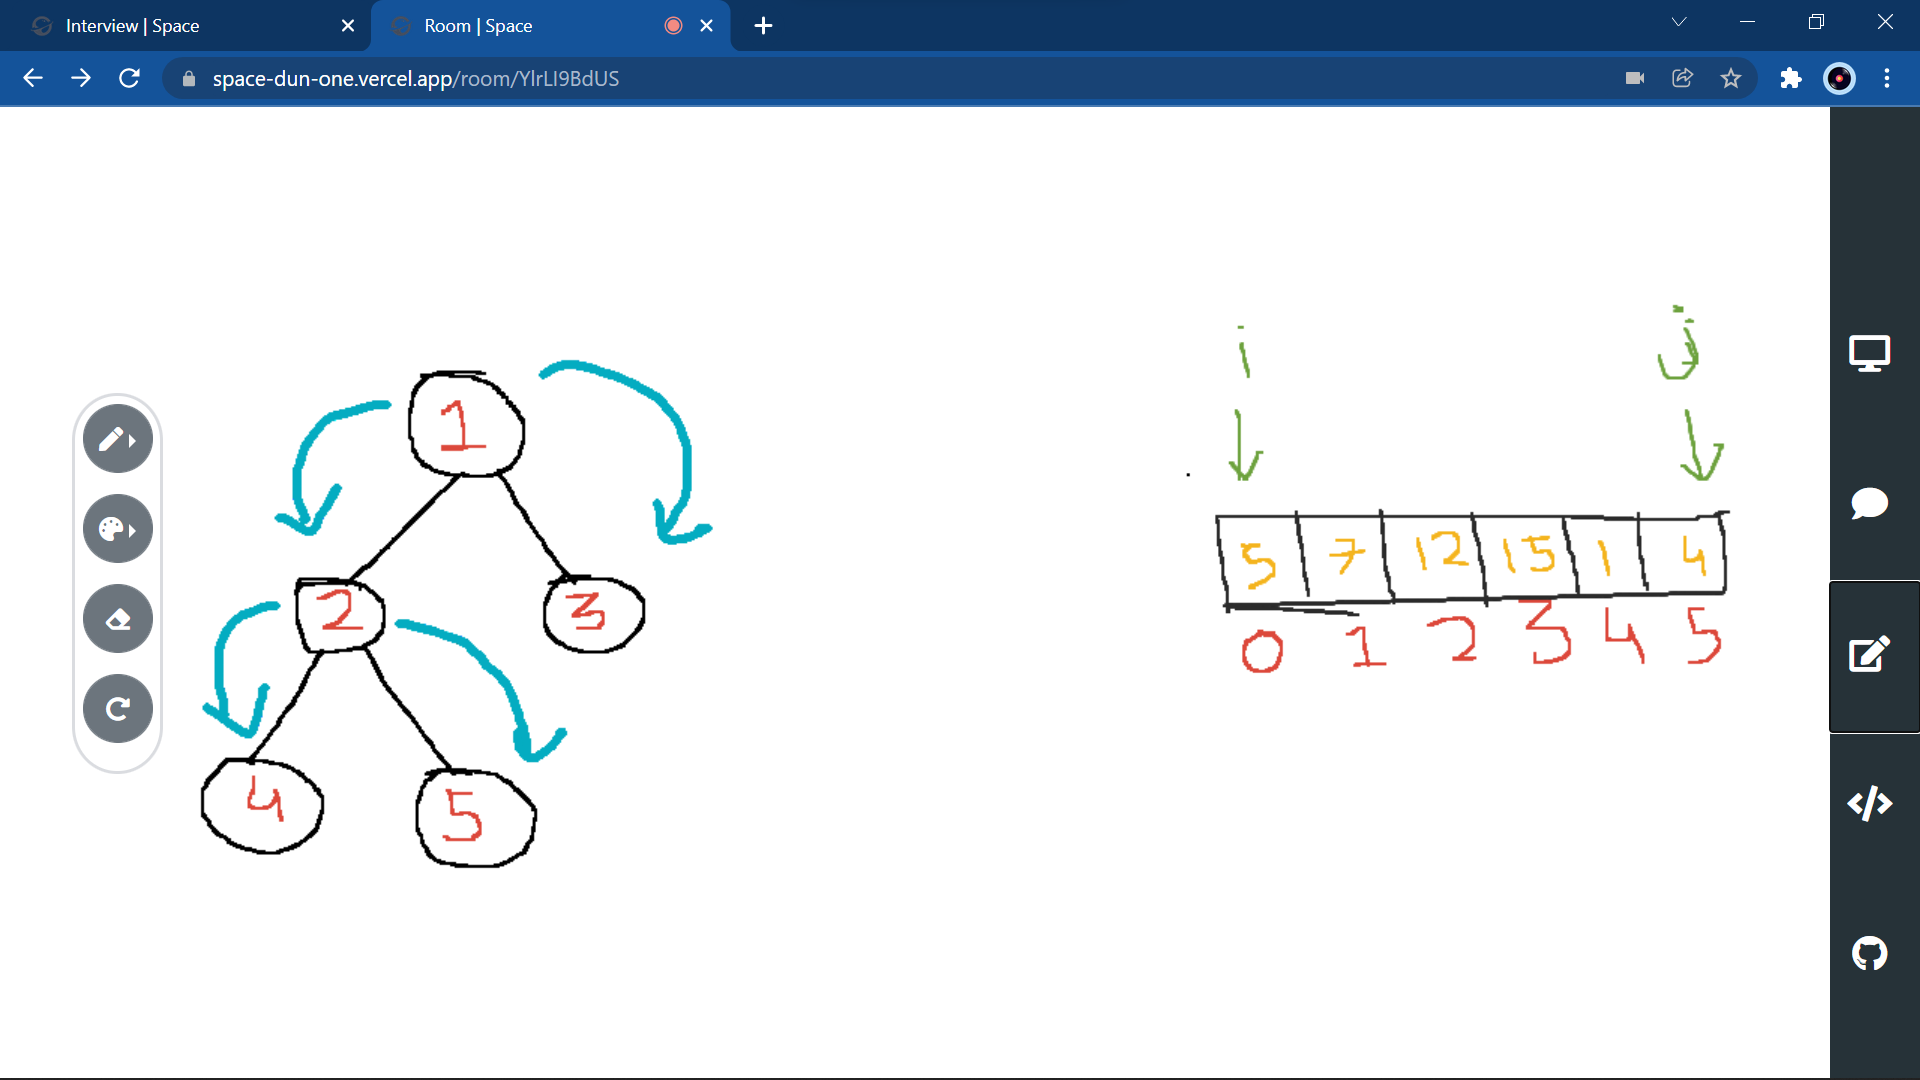 Interview | Space
Room | Space
space-dun-one.vercel.app/room/YlrLI9BdUS
1
2
3
4
5
i
j
5 7 12 15 1 4
0 1 2 3 4 5